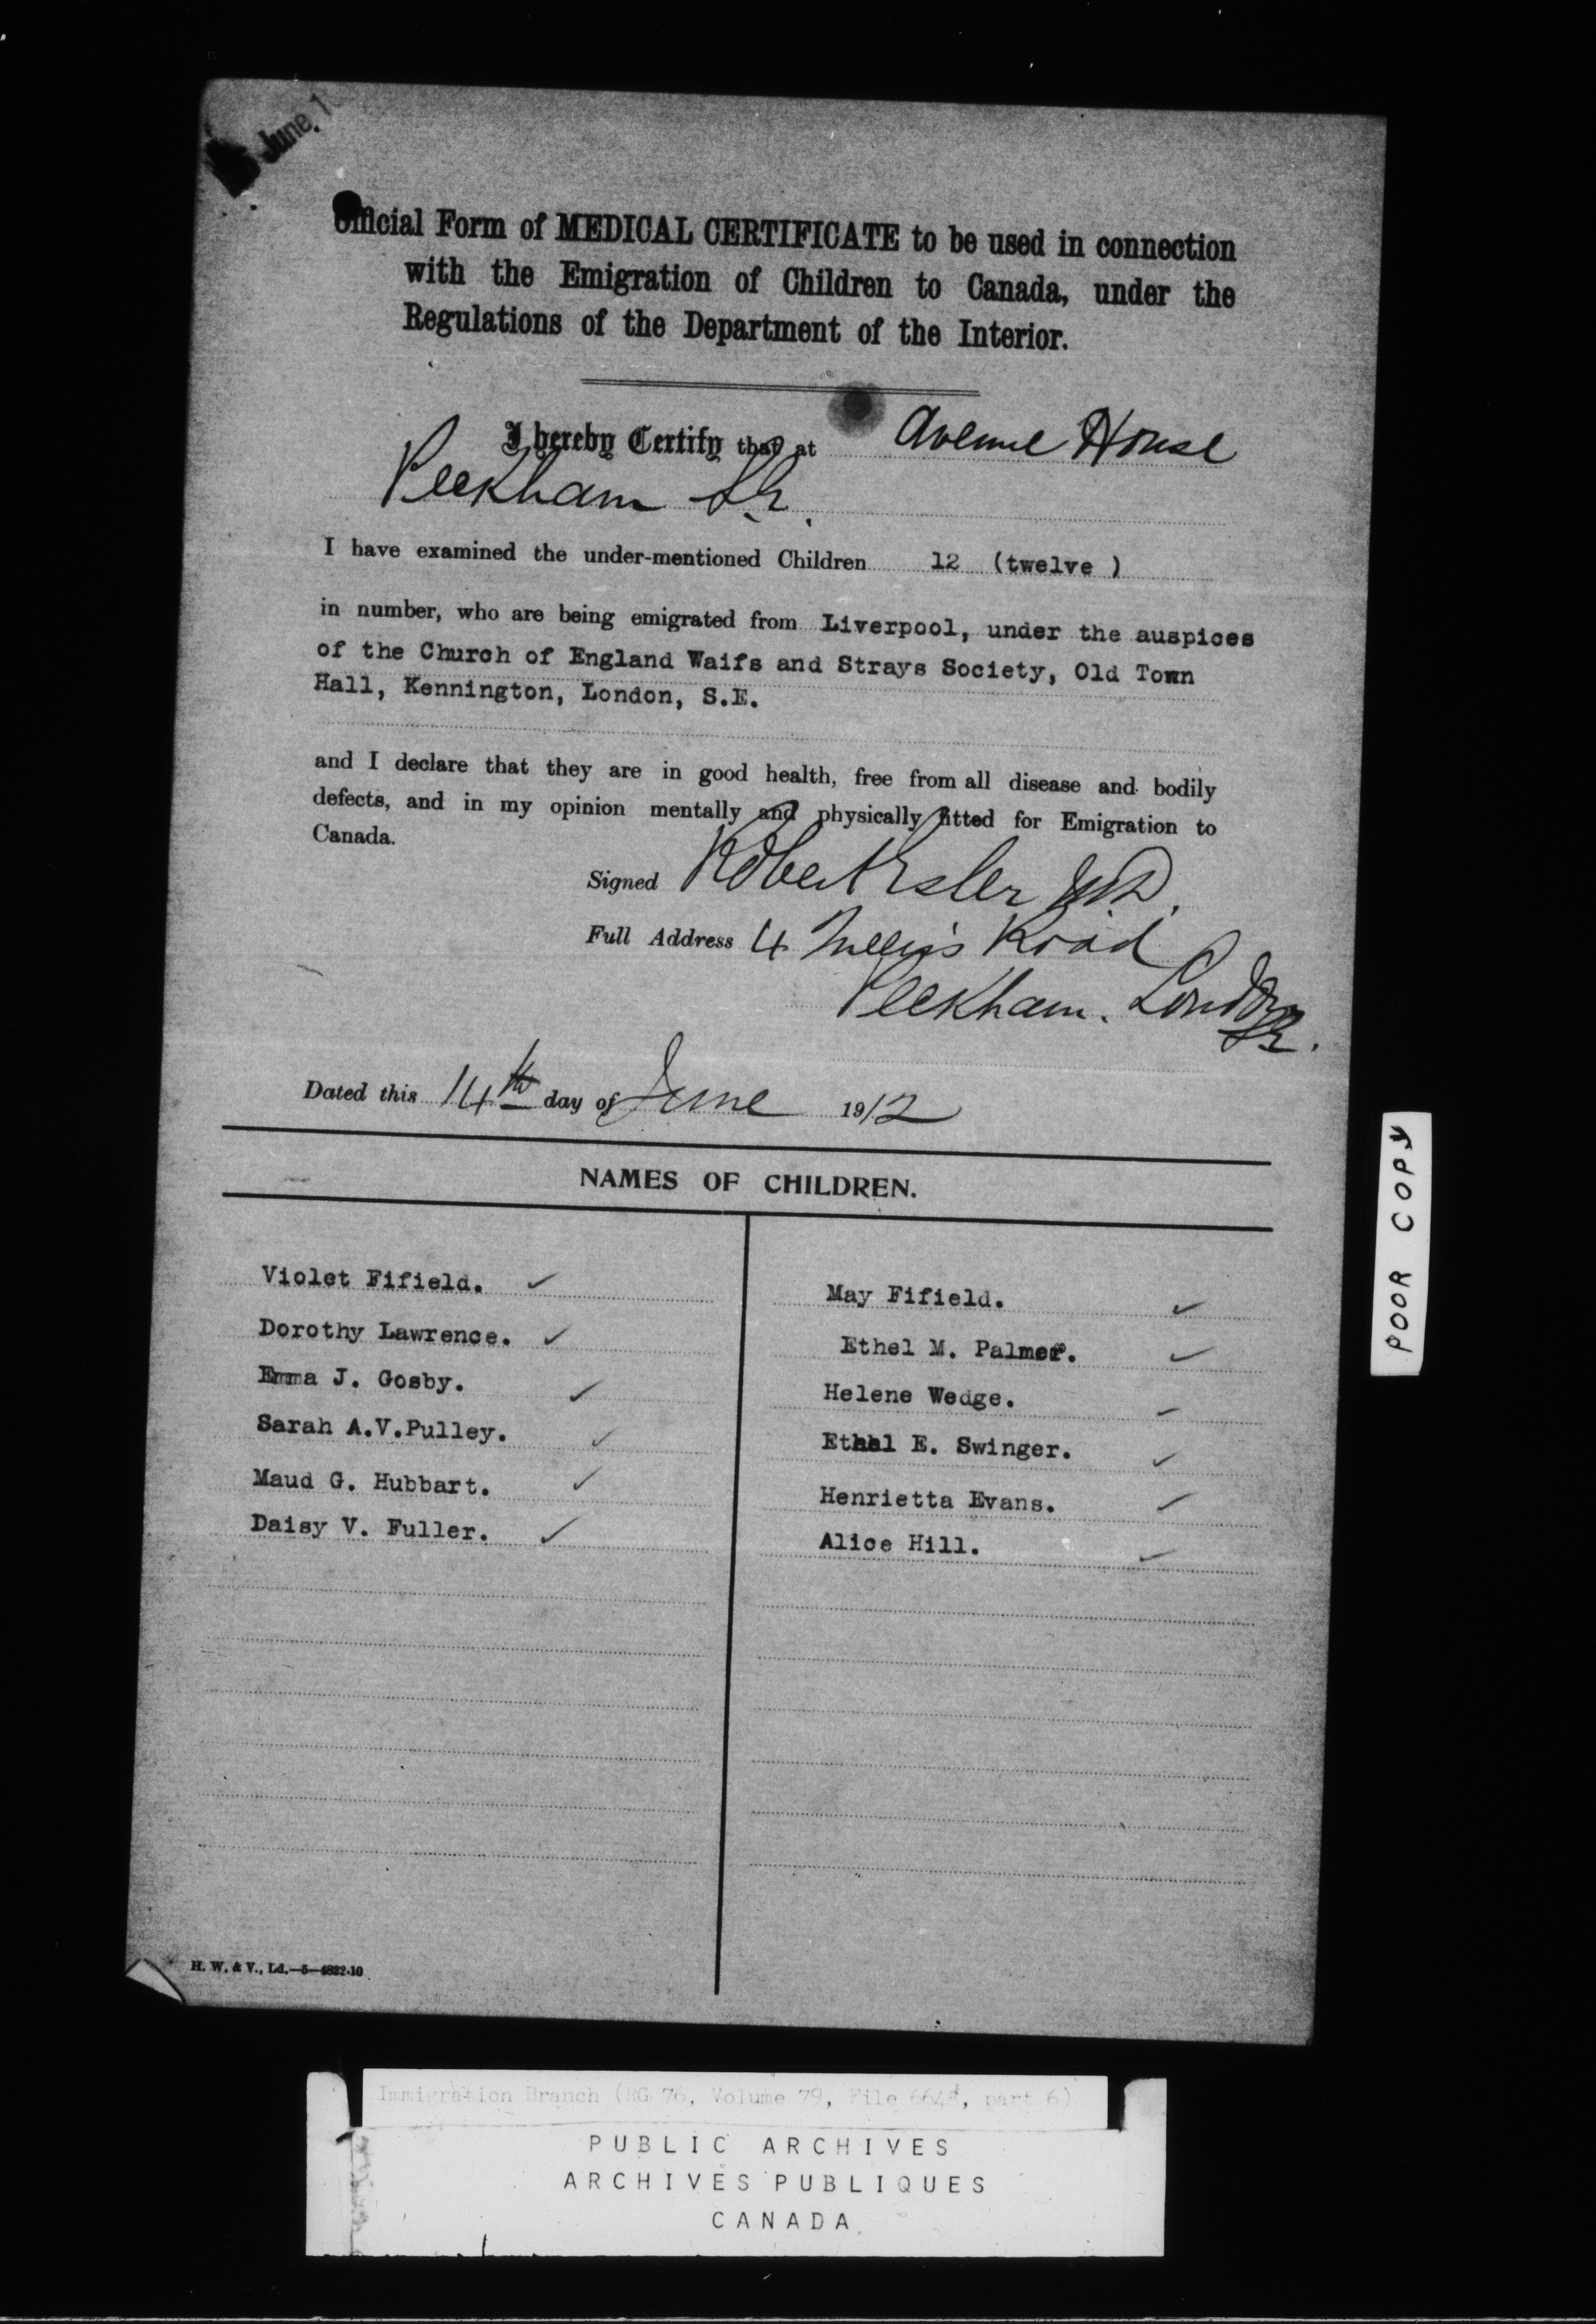 June. 1
Official Form of MEDICAL CERTIFICATE to be used in connection
with the Emigration of Children to Canada, under the
Regulations of the Department of the Interior.
I hereby Certify that at Avenue House
Peckham S.E.
I have examined the under-mentioned Children 12 (twelve )
in number, who are being emigrated from Liverpool, under the auspices
of the Church of England Waifs and Strays Society, Old Town
Hall, Kennington, London, S.E.
and I declare that they are in good health, free from all disease and bodily
defects, and in my opinion mentally and physically fitted for Emigration to
Canada.
Signed Robert Esler M.D.
Full Address 4 Road
Peckham. London
S.E.
Dated this 14th day of June 1912
NAMES OF CHILDREN.
Violet Fifield. ✓
May Fifield. ✓
Dorothy Lawrence. ✓
Ethel M. Palmer. ✓
Emma J. Gosby. ✓
Helene Wedge. ✓
Sarah A.V.Pulley. ✓
Ethel E. Swinger. ✓
Maud G. Hubbart. ✓
Henrietta Evans. ✓
Daisy V. Fuller. ✓
Alice Hill. ✓
H. W. & V., Ld.—5—4822-10
POOR COPY
Immigration Branch (RG 76, Volume 79, File part 6)
PUBLIC ARCHIVES
ARCHIVES PUBLIQUES
CANADA